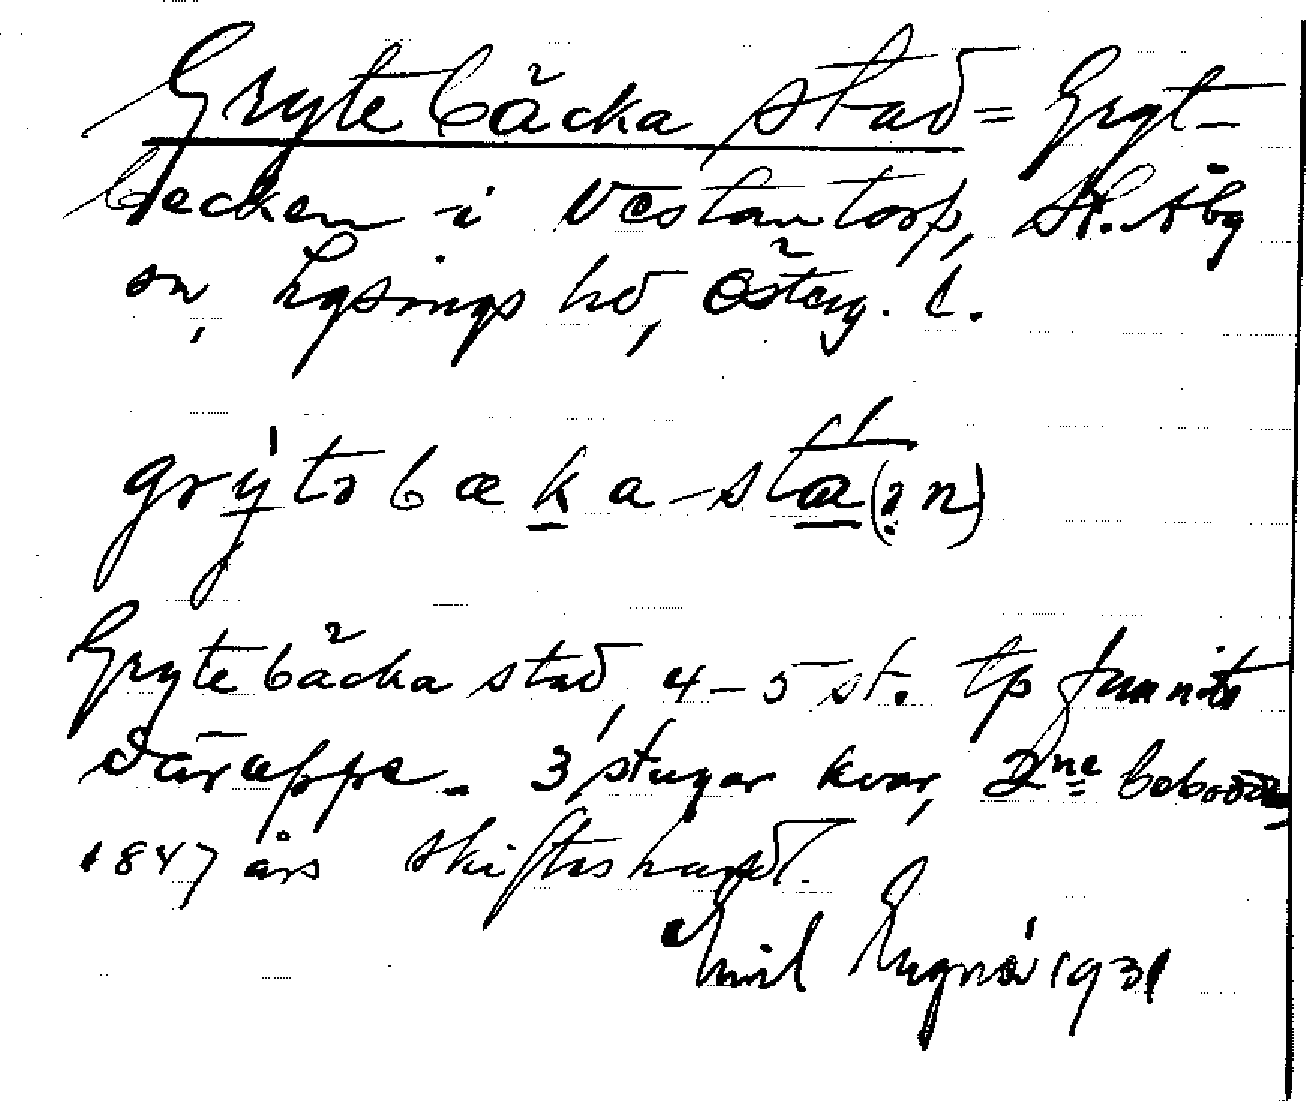 Grytebäcka stad = Gryt-
becken i Västantorp, St. Åby
sn, Lysings hd, Österg. l.
grytəbæka-sta(ən)
Grytebäcka stad, 4-5 st. tp funnits
däruppe. 3 stugor kvar, 2ne bebodda,
1847 års skifteshandl.
Emil 1931